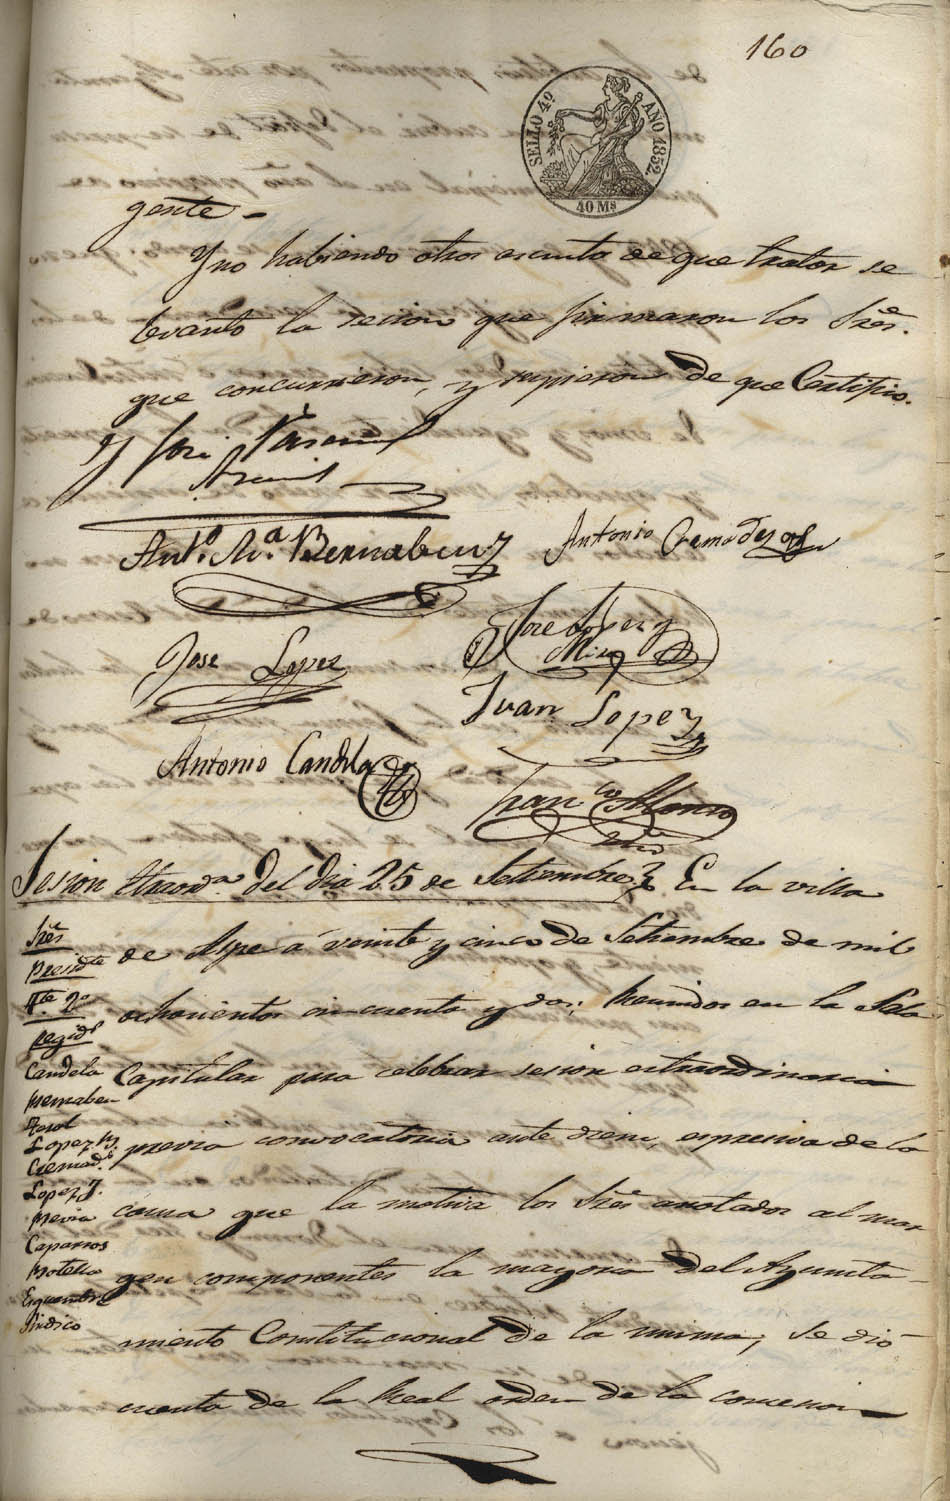 160
SELLO 4º AÑO 1852
40 Ms
gente
Y no habiendo otros asunto de que tratar se
levantó la sesion que firmaron los Sres.
que concurrieron, y supieron de que Certifico.
José
Anto. Ma. Bernabeu
Antonio Cremades
Jose Lopez
Jose Lopez y
Mira
Juan Lopez
Antonio Candela
Franco. Alonso
Sesion Etraorda. del dia 25 de Settiembre } En la villa
Sres
Presidte
Tte. 2º
Regids
Candela
Bernabeu
Terol
Lopez
Cremads.
Lopez J.
Caparros
Botella
Sindico
de Aspe á veinte y cinco de Setiembre de mil
ochocientos cincuenta y dos; Reunidos en la Sala
Capitular para celebrar sesion estraordinaria
previa convocatoria ante diem, espresiva de la
causa que la motiva los Sres anotados al mar
gen componentes la mayoria del Ayunta-
miento Constitucional de la misma; se dió
cuenta de la Real orden de la concesion